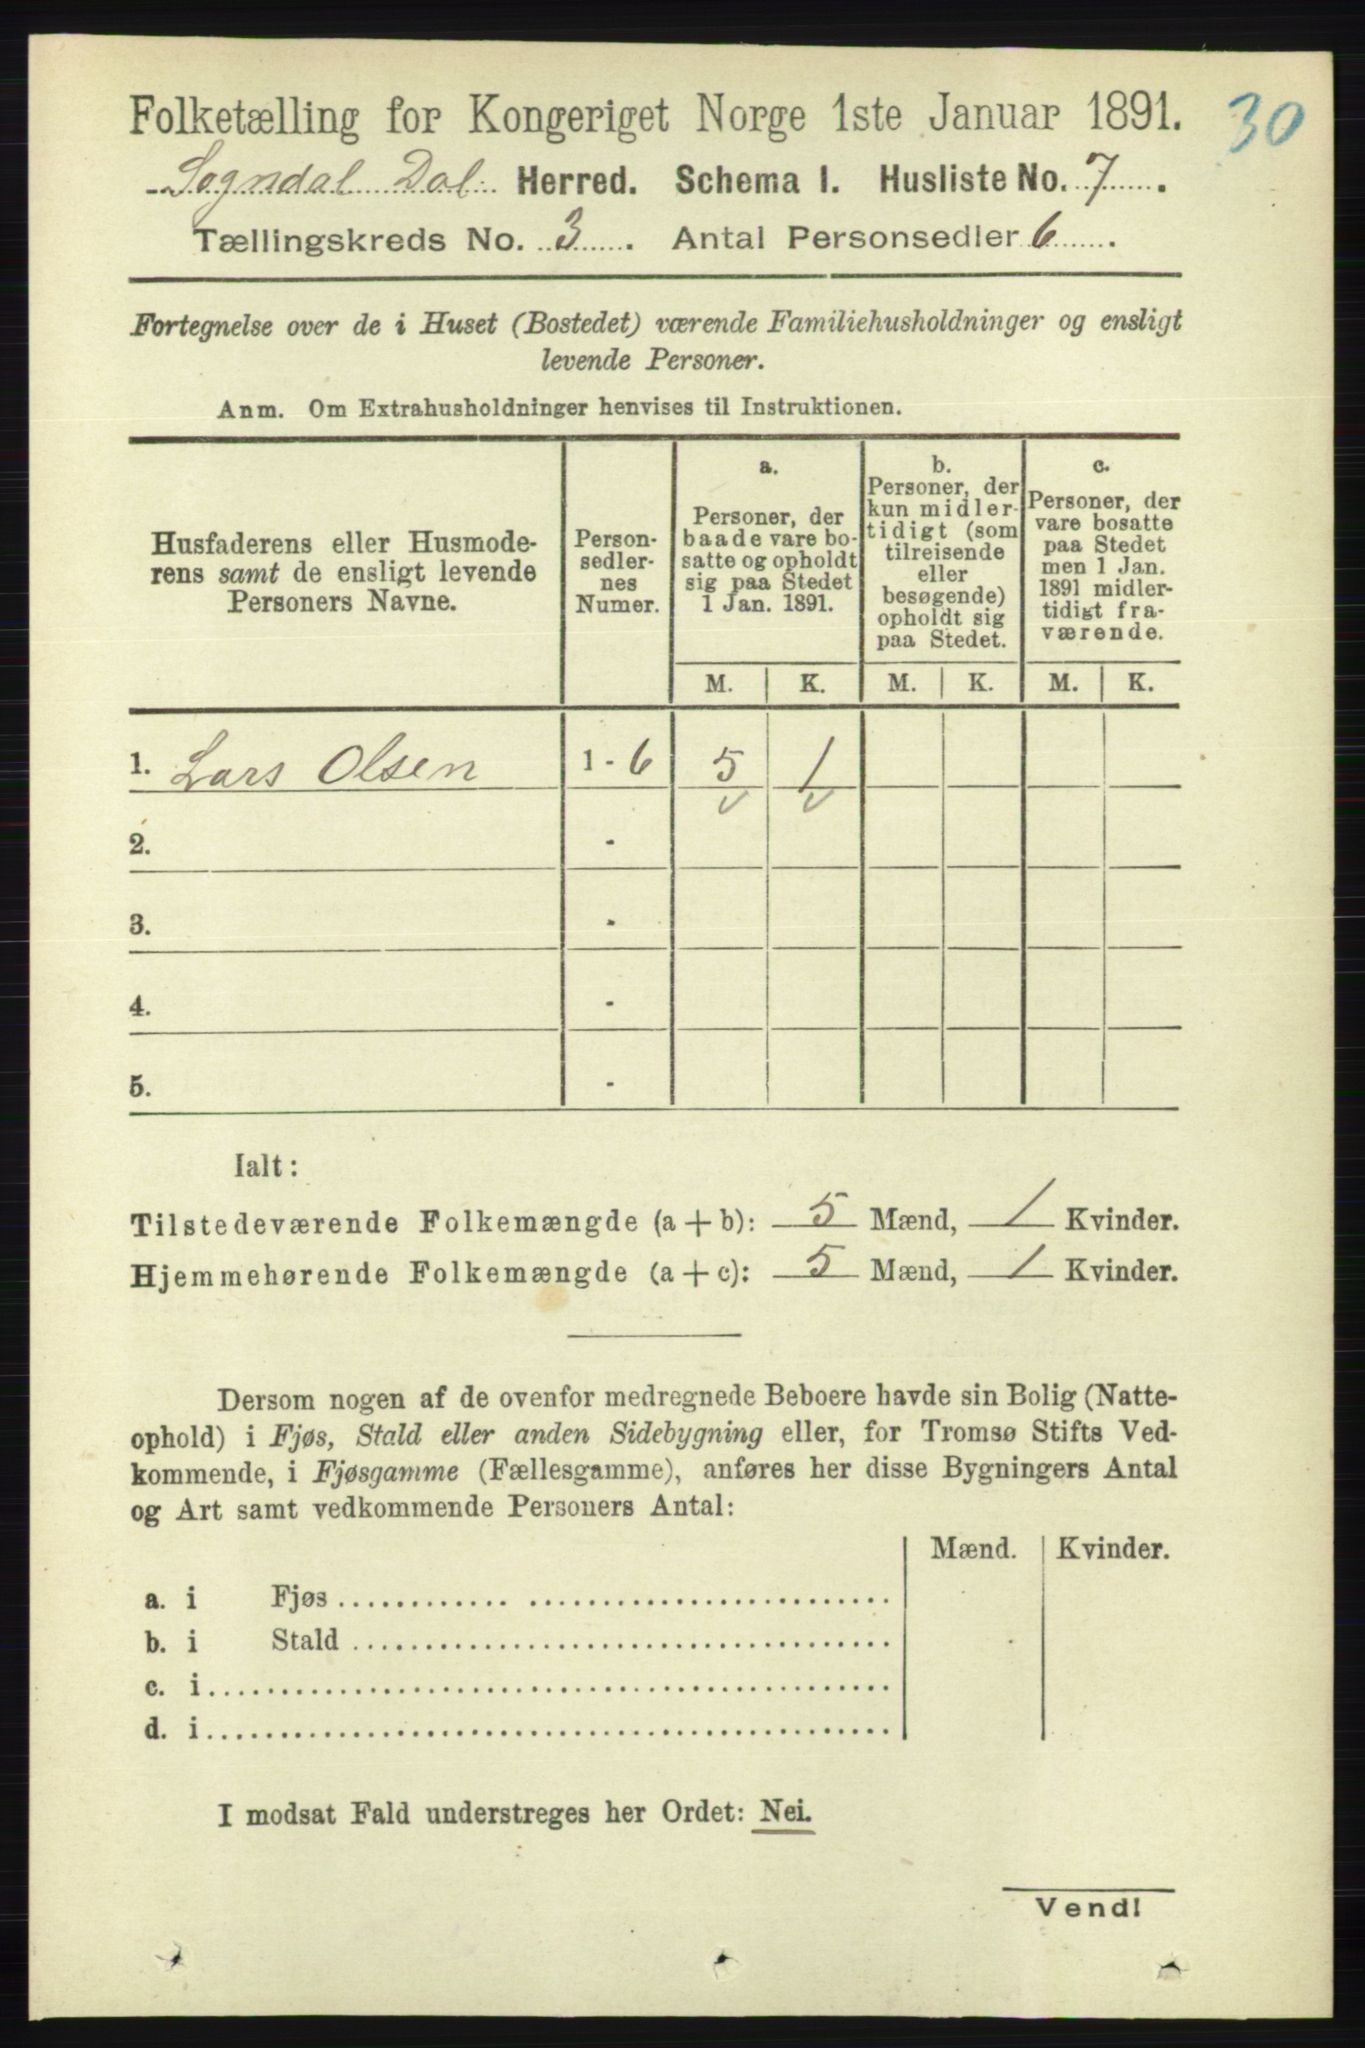 Folketælling for Kongeriget Norge 1ste Januar 1891.
30
Sogndal Dal Herred. Schema I. Husliste No. 7.
Tællingskreds No. 3. Antal Personsedler 6.
Fortegnelse over de i Huset (Bostedet) værende Familiehusholdninger og ensligt
levende Personer.
Anm. Om Extrahusholdninger henvises til Instruktionen.
Husfaderens eller Husmode-
rens samt de ensligt levende
Personers Navne.
Person-
sedler-
nes
Numer.
a.
Personer, der
baade vare bo-
satte og opholdt
sig paa Stedet
1 Jan. 1891.
b.
Personer, der
kun midler-
tidigt (som
tilreisende
eller
besøgende)
opholdt sig
paa Stedet.
c.
Personer, der
vare bosatte
paa Stedet
men 1 Jan.
1891 midler-
tidigt fra-
værende.
M. K. M. K. M. K.
1. Lars Olsen 1 - 6 5 1
2. -
3. -
4. -
5. -
Ialt:
Tilstedeværende Folkemængde (a + b): 5 Mænd, 1 Kvinder.
Hjemmehørende Folkemængde (a + c): 5 Mænd, 1 Kvinder.
Dersom nogen af de ovenfor medregnede Beboere havde sin Bolig (Natte-
ophold) i Fjøs, Stald eller anden Sidebygning eller, for Tromsø Stifts Ved-
kommende, i Fjøsgamme (Fællesgamme), anføres her disse Bygningers Antal
og Art samt vedkommende Personers Antal:
Mænd. Kvinder.
a. i Fjøs
b. i Stald
c. i
d. i
I modsat Fald understreges her Ordet: Nei.
Vend!